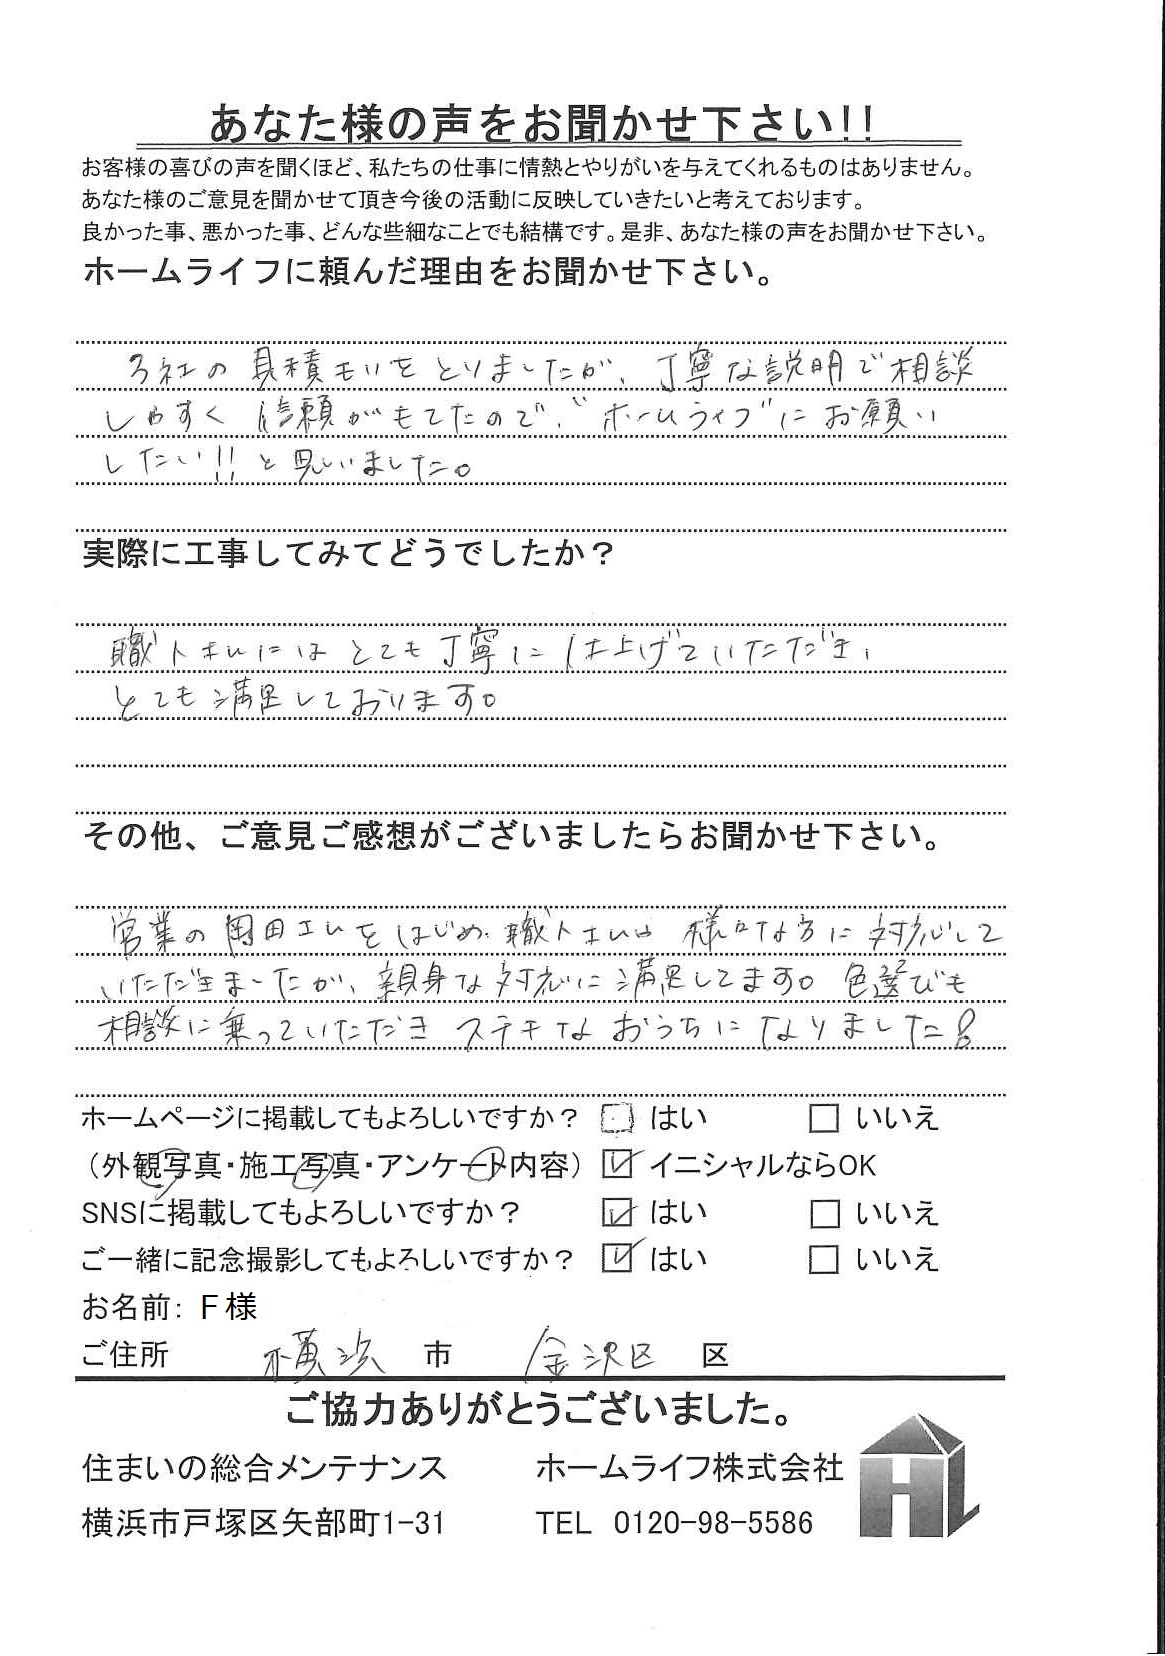 あなた様の声をお聞かせ下さい!!
お客様の喜びの声を聞くほど、私たちの仕事に情熱とやりがいを与えてくれるものはありません。
あなた様のご意見を聞かせて頂き今後の活動に反映していきたいと考えております。
良かった事、悪かった事、どんな些細なことでも結構です。是非、あなた様の声をお聞かせ下さい。
ホームライフに頼んだ理由をお聞かせ下さい。
3社の見積もりをとりましたが、丁寧な説明で相談
しやすく信頼がもてたので、"ホームライフ"にお願い
したい!!と思いました。
実際に工事してみてどうでしたか？
職人さんにはとても丁寧に仕上げていただき、
とても満足しております。
その他、ご意見ご感想がございましたらお聞かせ下さい。
営業の岡田さんをはじめ、職人さんは様々な方に対応して
いただきましたが、親身な対応に満足してます。色選びも
相談に乗っていただきステキなおうちになりました!
ホームページに掲載してもよろしいですか？ はい いいえ
（外観写真・施工写真・アンケート内容） イニシャルならOK
SNSに掲載してもよろしいですか？ はい いいえ
ご一緒に記念撮影してもよろしいですか？ はい いいえ
お名前: F様
ご住所 横浜 市 金沢区 区
ご協力ありがとうございました。
住まいの総合メンテナンス ホームライフ株式会社
横浜市戸塚区矢部町1-31 TEL 0120-98-5586
HL